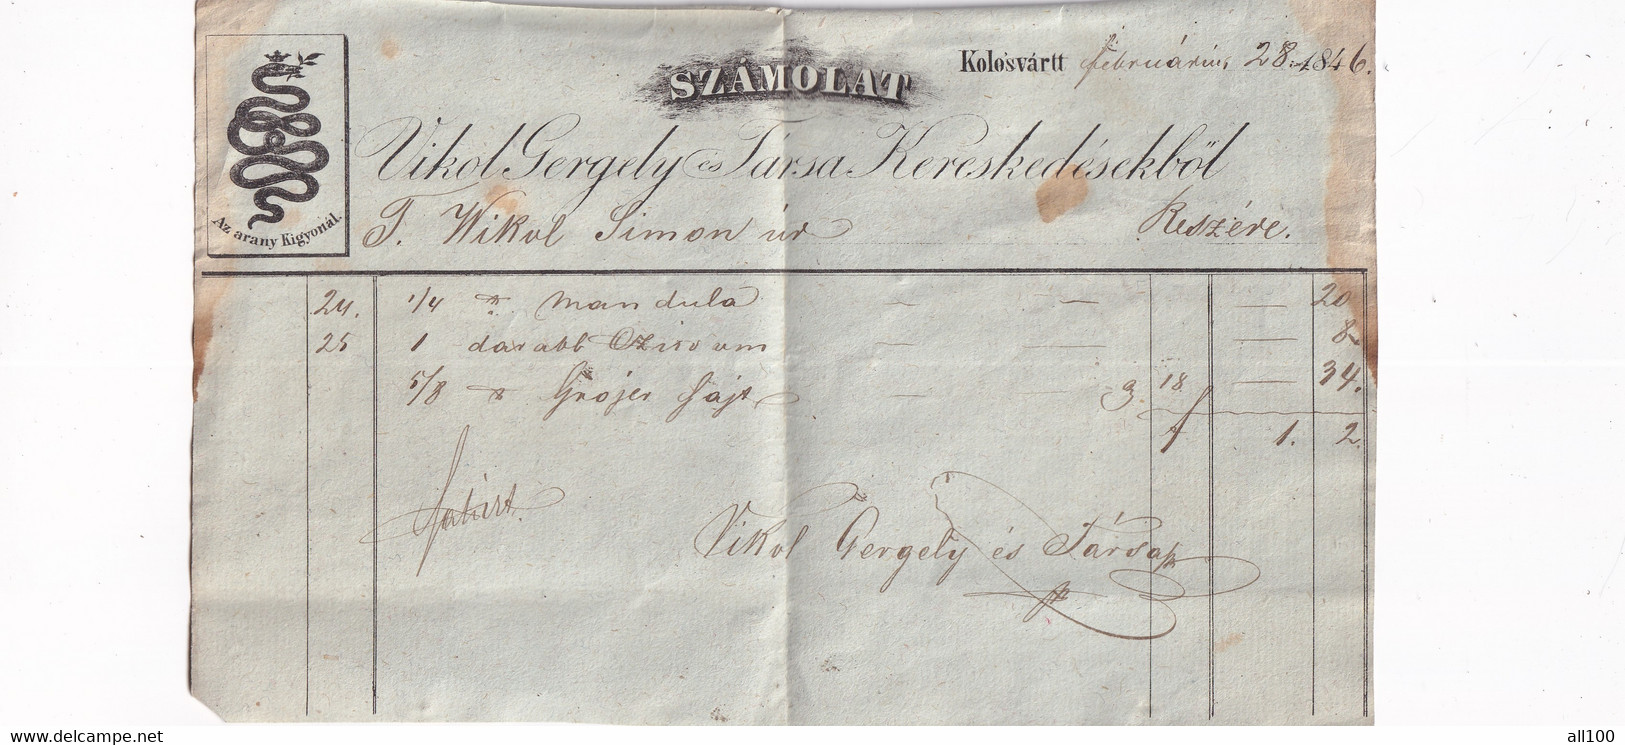 Kolosvártt februárius 28. 1846.
SZÁMOLAT
Vikol Gergely és Társa Kereskedésekből
Az arany Kigyonál.
T. Wikol Simon úr Reszére.
24. 1/4 mandula — — — 20
25 1 darabb — — 8
5/8 Grojer Sajt — 3 18 — 34.
f 1. 2.
Vikol Gergely és Társa
delcampe.net
all100